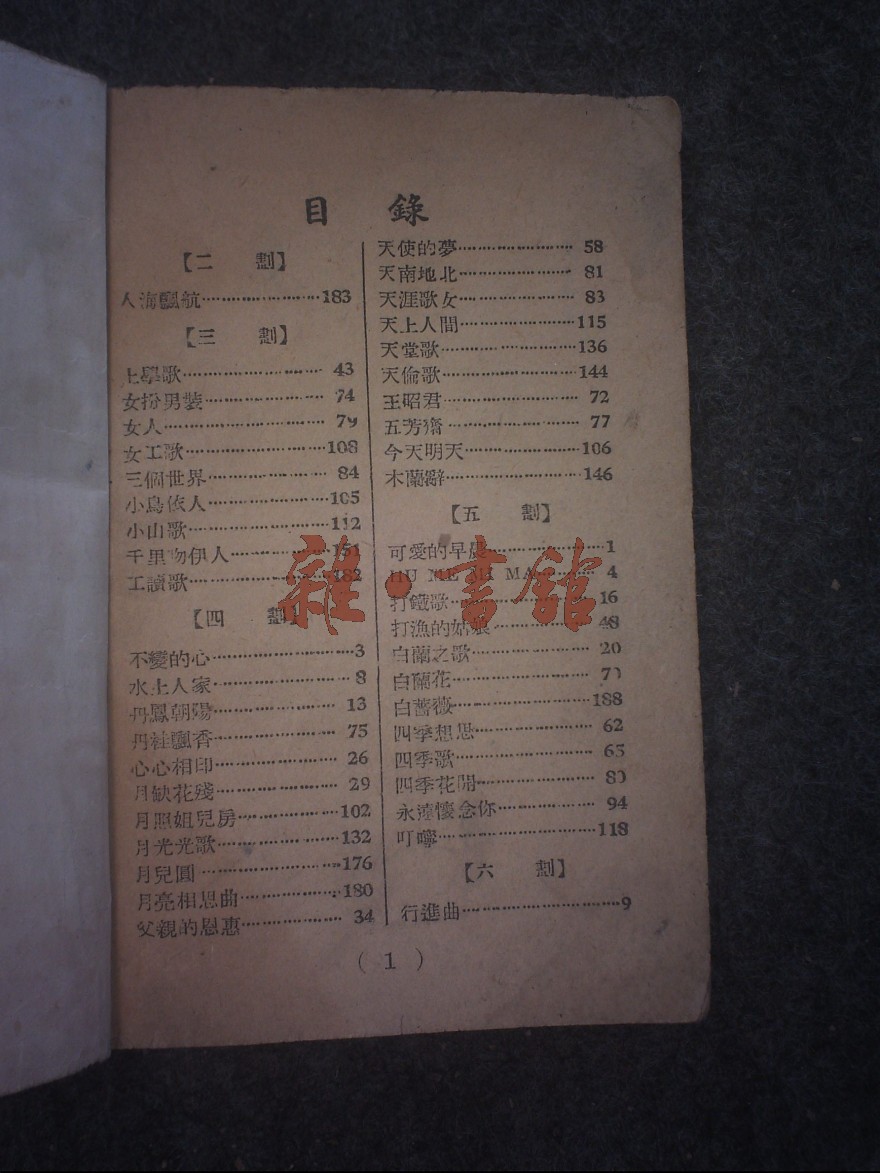 目 錄
【二 劃】
人海飄航 183
【三 劃】
上學歌 43
女扮男裝 74
女人 79
女工歌 108
三個世界 84
小鳥依人 105
小山歌 112
千里吻伊人 151
工讀歌 182
【四 劃】
不變的心 3
水上人家 8
丹鳳朝陽 13
丹桂飄香 75
心心相印 26
月缺花殘 29
月照姐兒房 102
月光光歌 132
月兒圓 176
月亮相思曲 180
父親的恩惠 34
天使的夢 58
天南地北 81
天涯歌女 83
天上人間 115
天堂歌 136
天倫歌 144
王昭君 72
五芳齋 77
今天明天 106
木蘭辭 146
【五 劃】
可愛的早晨 1
MA 4
打鐵歌 16
打漁的姑娘 48
白蘭之歌 20
白蘭花 70
白薔薇 188
四季想思 62
四季歌 65
四季花開 80
永遠懷念你 94
叮嚀 118
【六 劃】
行進曲 9
( 1 )
雜·書館